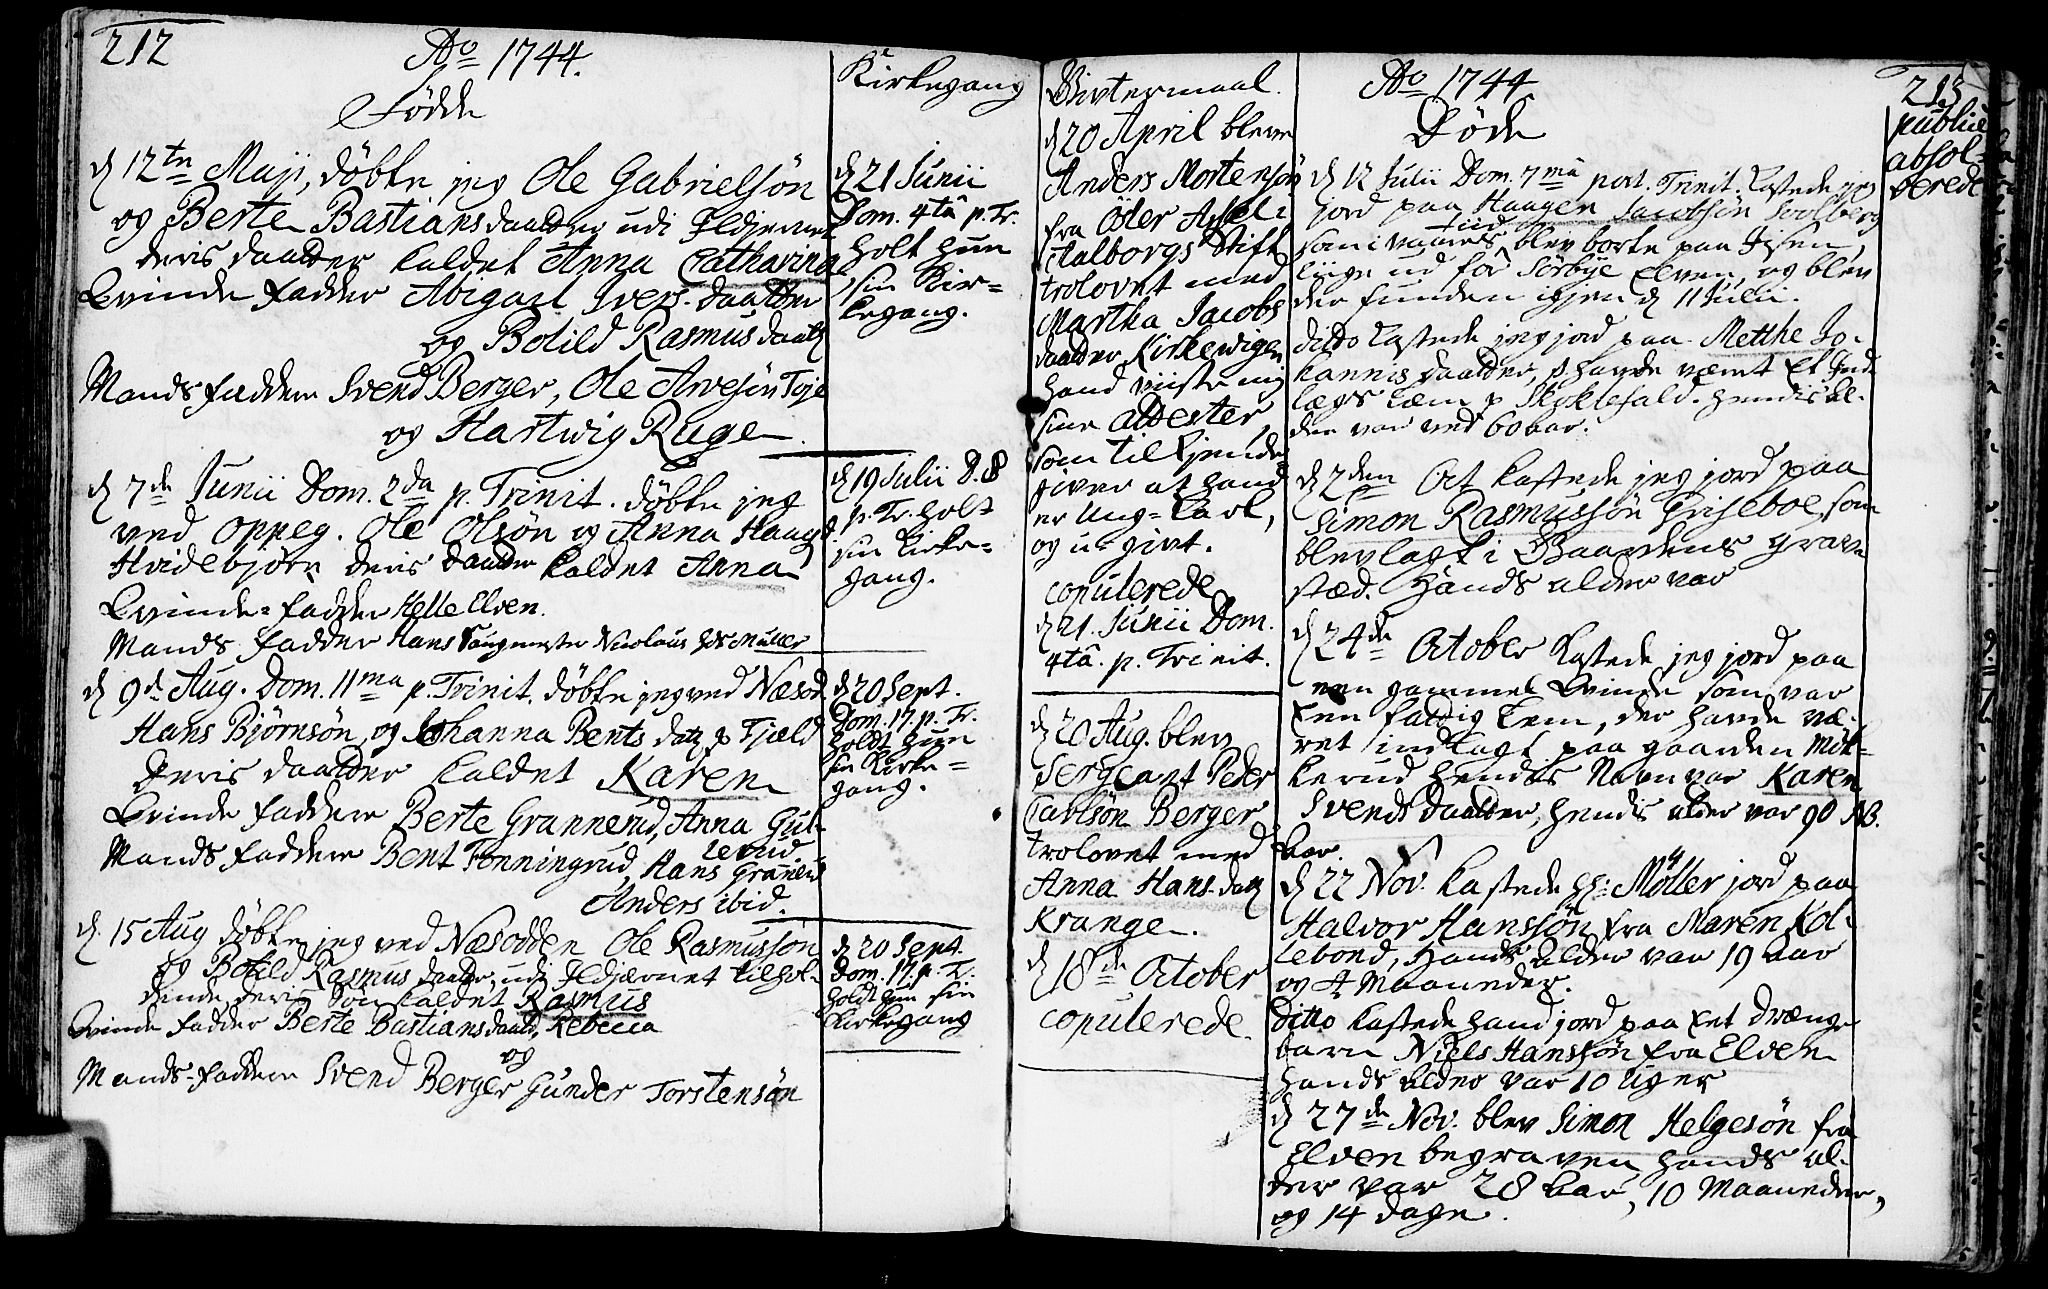 212
Ao 1744.
Födde
d 12te Maji, döbte jeg Ole Gabrielsön
og Berte Bastiansdaatter udi Ildjernet
deris daatter kaldet Anna Catharina
Qvinde fadder Abigael Ivers-daatter
og Botild Rasmus daatt
Mands faddere Svend Berger, Ole Arvesön Teje
og Hartwig Ruge.
d 7de Junii Dom. 2da p. Trinit. döbte jeg
ved oppeg. Ole Olsön og Anna Haags
Hvidebjörn deris daatter kaldet Anna
Qvinde-fadder Helle Elven.
Mands fadder Hans Saugmester Nicolaus Müller
d 9de Aug. Dom. 11ma p. Trinit. döbte jeg ved Næsod.
Hans Björnsön, og Johanna Bents dat p Fjæld
deris daatter kaldet Karen
Qvinde faddere Berte Grannerud, Anna Gul-
lerud
Mands faddere Bent Tonningrud, Hans Grannerud
Anders ibid.
d. 15 Aug döbte jeg ved Næsodden Ole Rasmussön
og Botild Rasmus daatter, udi Ildjærnet tilhol-
dende, deris Sön kaldet Rasmus
Qvinde fadder Berte Bastians daatt, Rebecca
og
Mands-faddere Svend Berger Gunder Torstensön
Kirkegang
d 21 Junii
Dom. 4tâ p. Tr.
holt hun
sin Kir-
kegang.
d 19 Julii D. 8
p. Tr. holt
sin Kirke-
gang.
d 20 Sept.
Dom. 17. p. Tr.
holdt hun
sin Kirke-
gang.
d 20 Sept.
Dom. 17. p. Tr.
holdt hun sin
Kirkegang
d 20 April blev
Anders Mortensön
fra Öster
Aalborgs Stift
trolovet med
Martha Jacobs
daatter Kirkewigen
hand viiste mig
sine attester,
som tilkjende
giver at hand
er Ung-Karl,
og u-givt.
copulerede
d 21. Junii Dom.
4tâ. p. Trinit.
d 20 Aug. blev
Sergeant Peder
Carlsön Berger
trolovet med
Anna Hans-dat
Krange.
d 18de October
copulerede.
Ao 1744
Döde
d 12 Julii Dom. 7mâ post. Trinit. kastede jeg
jord paa Haagen Jacobsön Soelberg
tiid
som i vaares, blev borte paa Isen,
liige ud for Sörbye Elven, og blev
der funden igjen d 11 Julii.
Ditto kastede jeg jord paa Metthe Jo-
hannis daatter, p havde været et Ind
lægs Lem p Skoklefald. hendis al-
der var ved 60 aar.
d 2den Oct kastede jeg jord paa
Simon Rasmussön Griseboe, som
blev lagt i Gaardens grave
stæd. Hands alder var
d 24de October kastede jeg jord paa
een gammel Qvinde som var
een fattig Lem, der havde væ-
ret indlagt paa gaarden Mök-
kerud hendis Navn var Karen
Svends daatter, hendis alder var 90
aar.
NB.
d 22 Nov. kastede Hr: Möller jord paa
Halvor Hanssön fra Maren Kol-
lebond, Hands alder var 19 aar
og 4 Maaneder.
Ditto kastede hand jord paa eet drænge
barn Niels Hanssön fra Elven
hands alder var 10 uger
d 27de Nov. blev Simon Helgesön fra
Elven begraven, hands al-
der var 28 aar, 10 Maaneder,
og 14 dage.
213
publice
absol-
verede